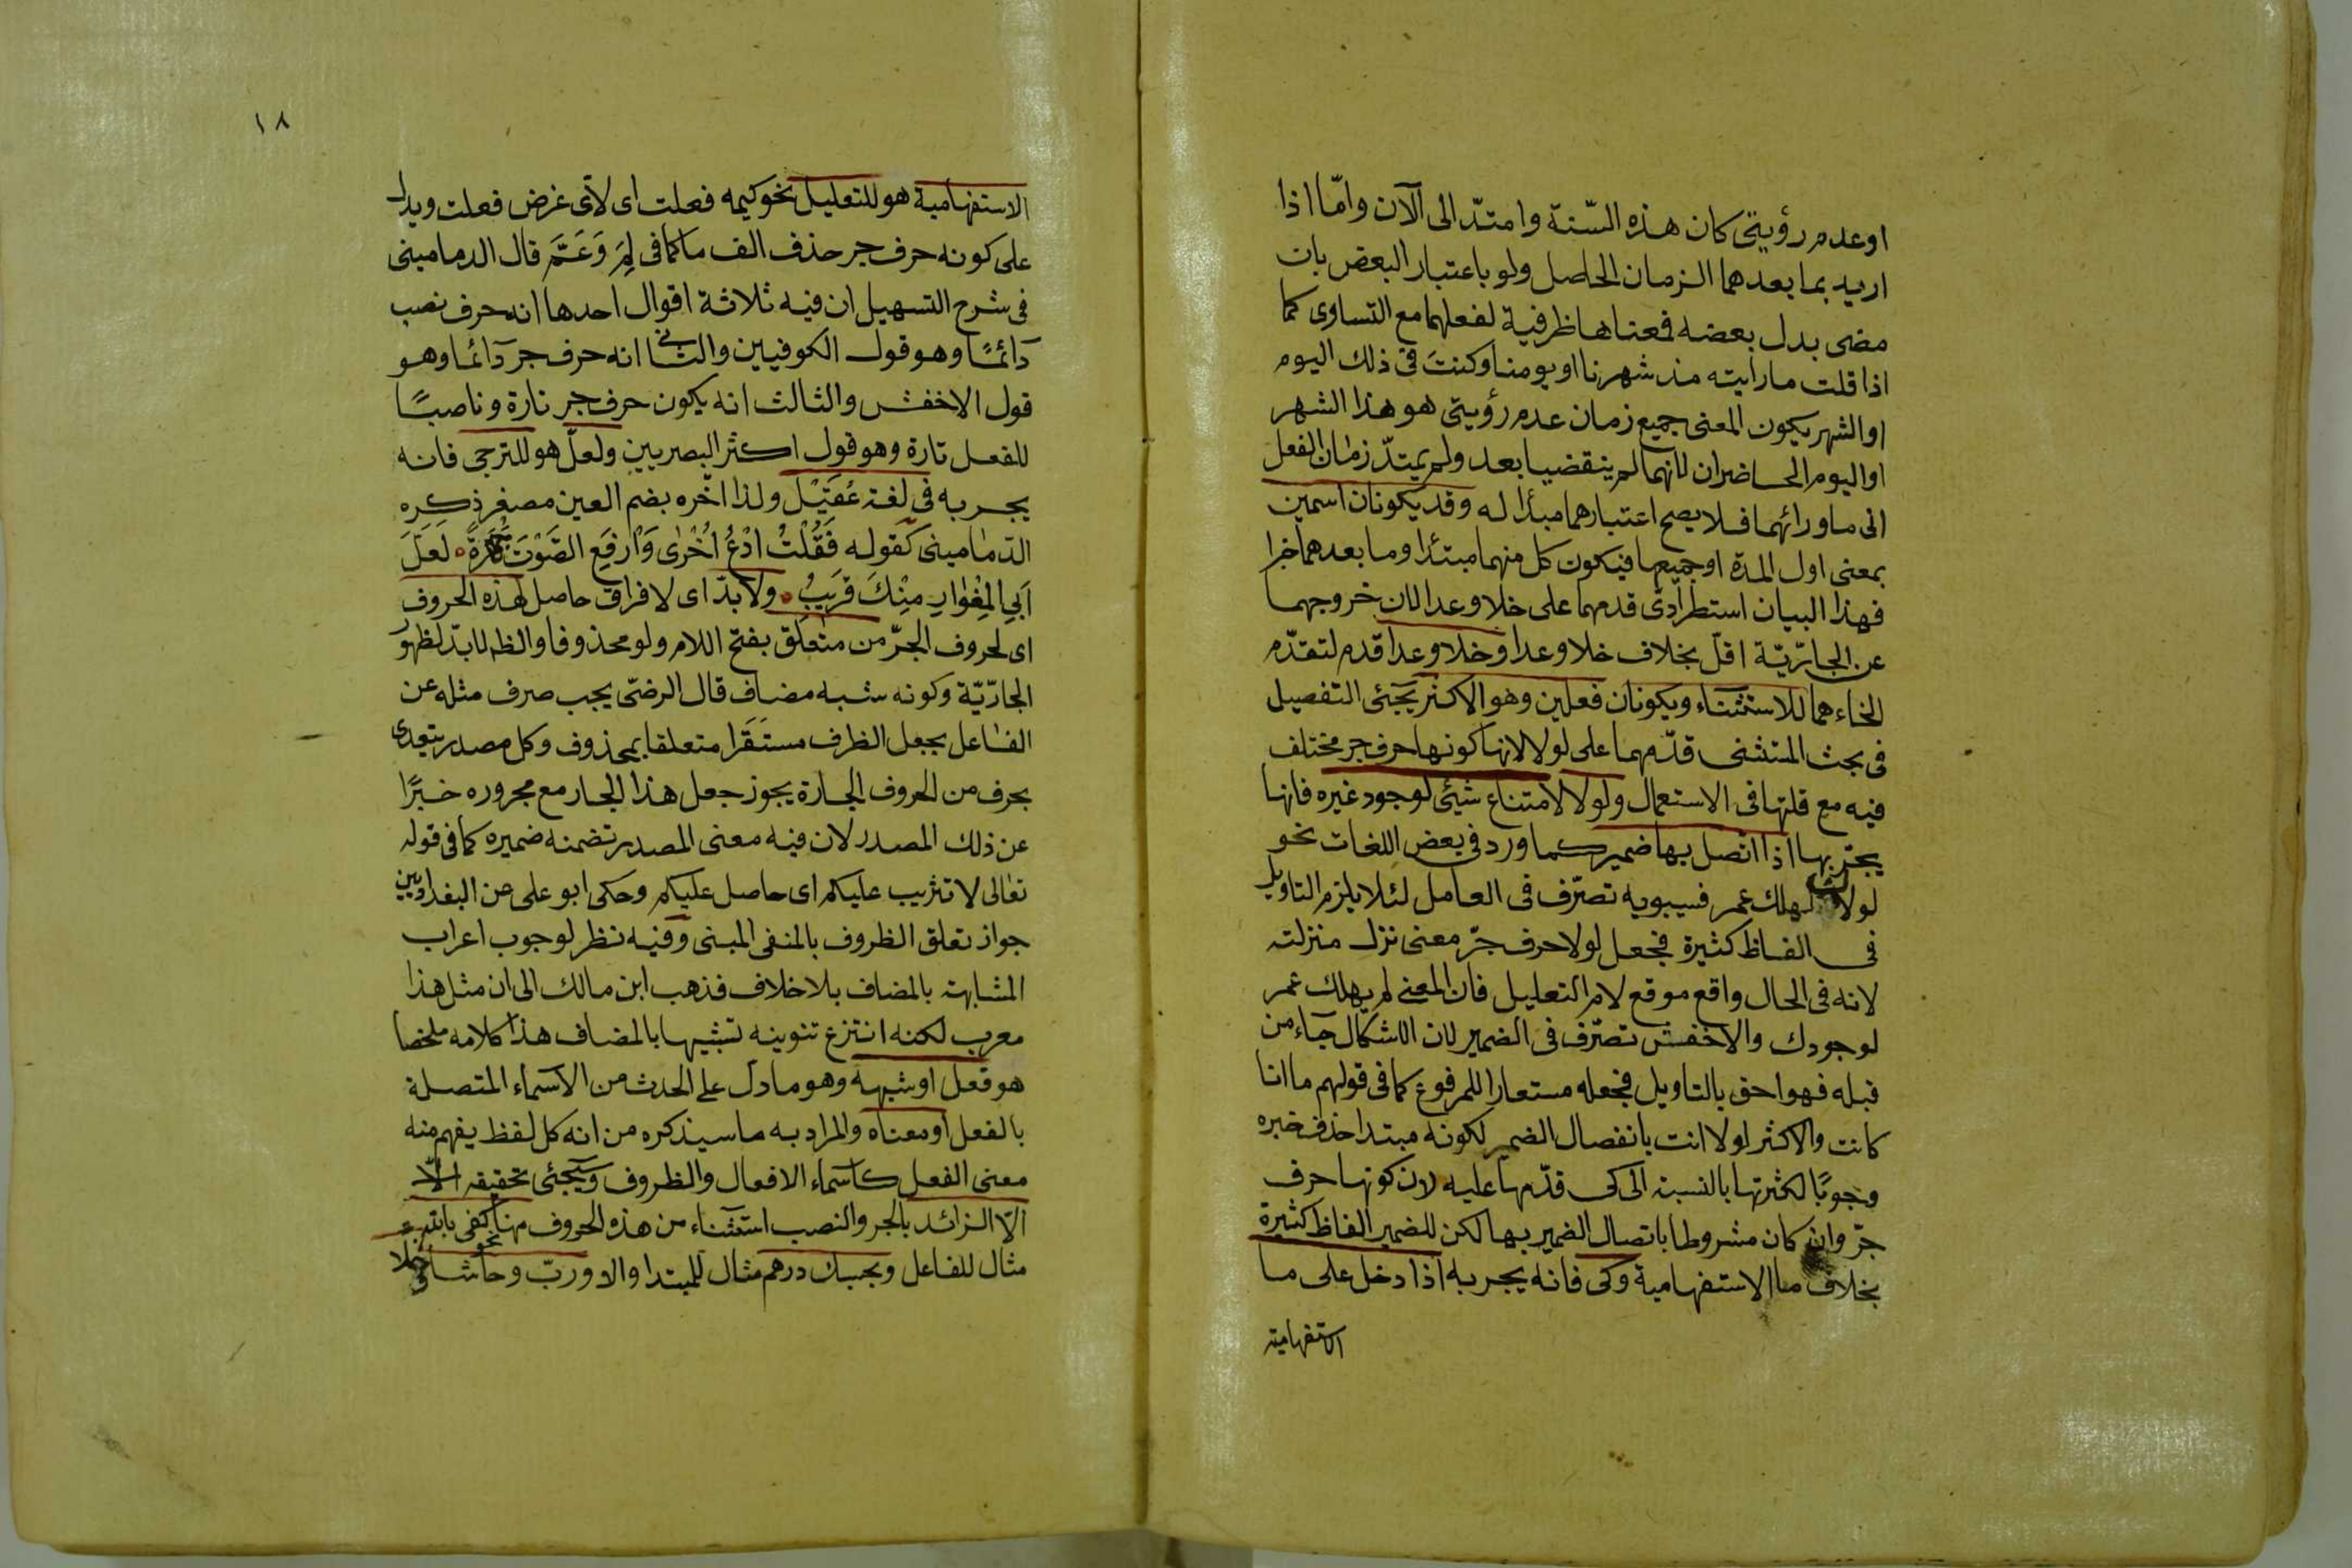 او عدم رؤيتى كان هذه السّنة وامتدّ الى الآن وامّا اذا
اريد بما بعدهما الزمان الحاصل ولو باعتبار البعض بان
مضى بدل بعضه فمعناها ظرفية لفعلهما مع التساوى كما
اذا قلت ما رايته مذ شهرنا او يومنا وكنتَ فى ذلك اليوم
او الشهر يكون المعنى جميع زمان عدم رؤيتى هو هذا الشهر
او اليوم الحاضران لانهما لم ينقضيا بعد ولم يمتدّ زمان الفعل
الى ما ورائهما فلا يصح اعتبارهما مبدأ له وقد يكونان اسمين
بمعنى اول المدة او جميعها فيكون كل منهما مبتدأ وما بعدهما خبرا
فهذا البيان استطرادىّ قدمهما على خلا وعدا لان خروجهما
عن الجارّيّة اقلّ بخلاف خلا وعدا وخلا وعدا قدم لتقدّم
الخاء هما للاستثناء ويكونان فعلين وهو الاكثر يجئى التفصيل
فى بحث المستثنى قدّمهما على لولا لانها كونها حرف جر مختلف
فيه مع قلتها فى الاستعمال ولولا لامتناع شيئى لوجود غيره فانها
يجرّ بها اذا اتصل بها ضمير كما ورد فى بعض اللغات نحو
لولاك لهلك عمر فسيبويه تصرّف فى العامل لئلا يلزم التاويل
فى الفاظ كثيرة فجعل لولا حرف جرّ معنى نزل منزلته
لانه فى الحال واقع موقع لام التعليل فان المعنى لم يهلك عمر
لوجودك والاخفش تصرّف فى الضمير لان الاشكال جاء من
قبله فهو احق بالتاويل فجعله مستعارا للمرفوع كما فى قولهم ما انا
كانت والاكثر لولا انت بانفصال الضمير لكونه مبتدا حذف خبره
وجوبًا لكثرتها بالنسبة الى كى قدّمها عليه لان كونها حرف
جرّ وان كان مشروطا باتصال الضمير بها لكن للضمير الفاظ كثيرة
بخلاف ما الاستفهامية وكى فانه يجر به اذا دخل على ما
الاستفهامية
١٨
الاستفهامية هو للتعليل نحو كيمه فعلت اى لاىّ غرض فعلت ويدل
على كونه حرف جر حذف الف ما كما فى لِمَ وَعَمَّ قال الدمامينى
فى شرح التسهيل ان فيه ثلاثة اقوال احدها انه حرف نصب
دائمًا وهو قول الكوفيين والثانى انه حرف جر دائما وهو
قول الاخفش والثالث انه يكون حرف جر تارة وناصبًا
للفعل تارة وهو قول اكثر البصريين ولعلّ هو للترجى فانه
يجر به فى لغة عُقَيْل ولذا اخّره بضم العين مصغر ذكره
الدّمامينى كقوله فَقُلْتُ ادْعُ اُخْرٰى وَارْفَعِ الصَّوْتَ جَهْرَةً لَعَلَّ
اَبِى المِغْوَارِ مِنْكَ قَرِيبُ ولا بدّ اى لا فراق حاصل لهذه الحروف
اى لحروف الجرّ من متعلَق بفتح اللام ولو محذوفا والظ لابدّ لظهور
الجارّيّة وكونه شبه مضاف قال الرضى يجب صرف مثله عن
الفاعل بجعل الظرف مستَقَرا متعلقا بمحذوف وكل مصدر يتعدى
بحرف من الحروف الجارة يجوز جعل هذا الجار مع مجروره خبرًا
عن ذلك المصدر لان فيه معنى المصدر تضمنه ضميره كما فى قوله
تعالى لا تثريب عليكم اى حاصل عليكم وحكى ابو على عن البغداديين
جواز تعلق الظروف بالمنفى المبنى وفيه نظر لوجوب اعراب
المشابهة بالمضاف بلا خلاف فذهب ابن مالك الى ان مثل هذا
معرب لكنه انتزع تنوينه تشبيها بالمضاف هذا كلامه ملخصا
هو فعل او شبهه وهو ما دلّ على الحدث من الاسماء المتصلة
بالفعل او معناه والمراد به ما سيذكره من انه كل لفظ يفهم منه
معنى الفعل كاسماء الافعال والظروف وسيجئى تحقيقه
الّا الزائد بالجر والنصب استثناء من هذه الحروف نحو كفى بالله
مثال للفاعل وبحسبك درهم مثال للمبتدا والا وربّ وحاشا وخلا